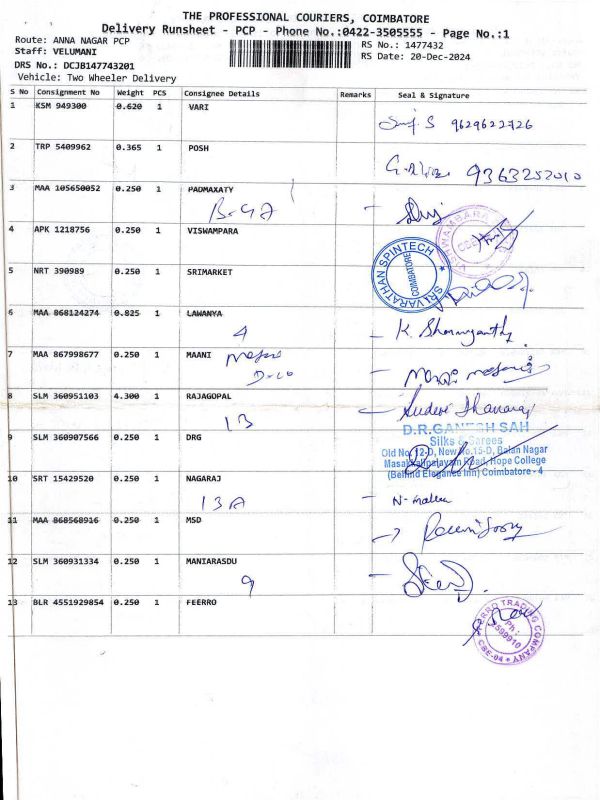 THE PROFESSIONAL COURIERS, COIMBATORE
Delivery Runsheet - PCP - Phone No.:0422-3505555 - Page No.:1
Route: ANNA NAGAR PCP
RS No.: 1477432
Staff: VELUMANI
RS Date: 20-Dec-2024
DRS No.: DCJB147743201
Vehicle: Two Wheeler Delivery
S No Consignment No Weight PCS Consignee Details Remarks Seal & Signature
1 KSM 949300 0.620 1 VARI
9629622726
2 TRP 5409962 0.365 1 POSH
9363252010
3 MAA 105650052 0.250 1 PADMAXATY
B-G7
4 APK 1218756 0.250 1 VISWAMPARA
5 NRT 390989 0.250 1 SRIMARKET
SRI VARATHAN SPINTECH
COIMBATORE
6 MAA 868124274 0.825 1 LAWANYA
4
7 MAA 867998677 0.250 1 MAANI
8 SLM 360951103 4.300 1 RAJAGOPAL
13
9 SLM 360907566 0.250 1 DRG
D.R.GANESH SAH
Silks & Sarees
Old No.12-D, New No.15-D, Balan Nagar
Masakkalipalayam Road, Hope College
(Behind Elegance Inn) Coimbatore - 4
10 SRT 15429520 0.250 1 NAGARAJ
13A
11 MAA 868568916 0.250 1 MSD
12 SLM 360931334 0.250 1 MANIARASDU
9
13 BLR 4551929854 0.250 1 FEERRO
FERRO TRADING COMPANY
CBE-04